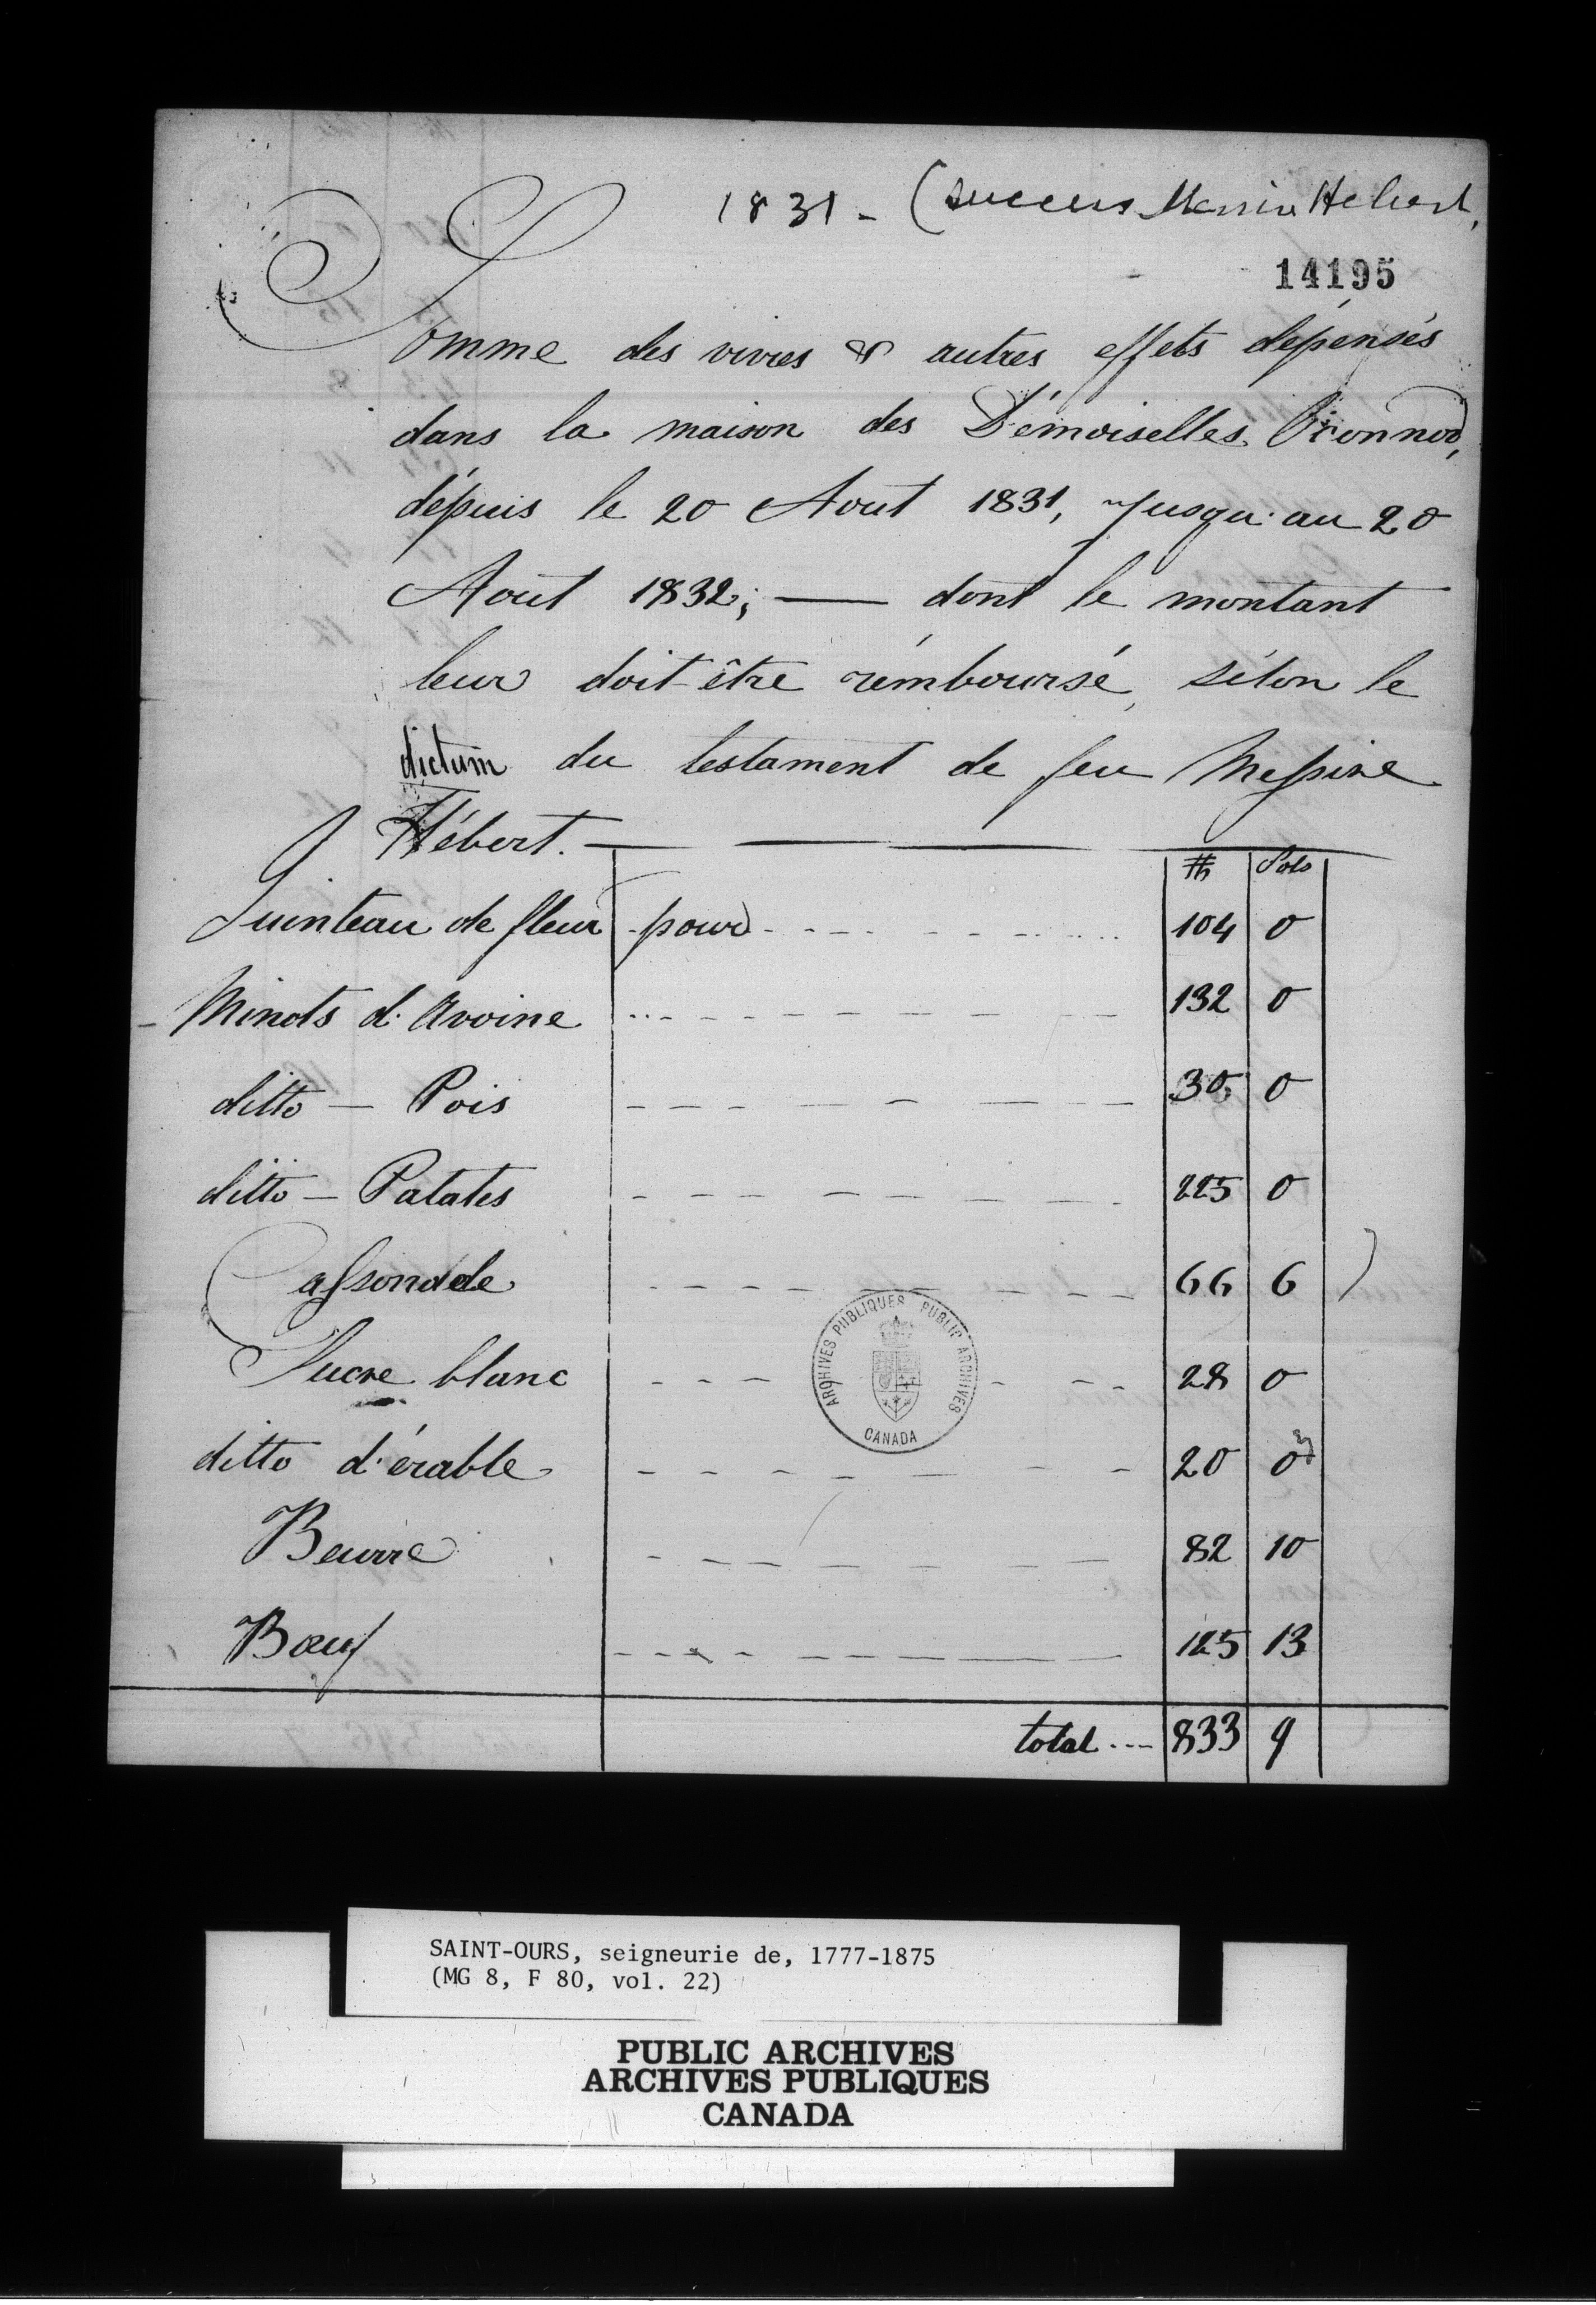 1831 - (success Messire Hébert,
14195
Somme des vivres & autres effets dépensés
dans la maison des Démoiselles O'connor,
dépuis le 20 Aout 1831, Jusqu'au 20
Aout 1832; — dont le montant
leur doit être rémboursé, sélon le
dictum du testament de feu Messire
Hébert. —
₶ Sols
Quinteau de fleur pour 104 0
- Minots d'Avoine 132 0
ditto — Pois 30 0
ditto — Patates 225 0
Cassonade 66 6
Sucre blanc 28 0
ditto d'érable 20 0
Beurre 82 10
Bœuf 125 13
total --- 833 9
ARCHIVES PUBLIQUES PUBLIC ARCHIVES
CANADA
SAINT-OURS, seigneurie de, 1777-1875
(MG 8, F 80, vol. 22)
PUBLIC ARCHIVES
ARCHIVES PUBLIQUES
CANADA